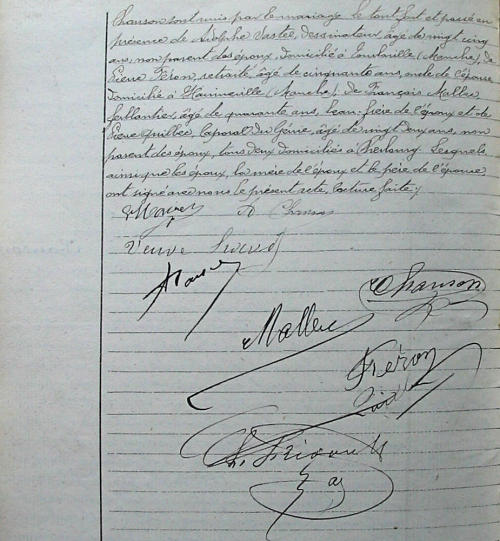 Chanson sont unis par le mariage le tout fait et passé en
présence de Adolphe Castel, dessinateur, âgé de vingt cinq
ans, non parent des époux, domicilié à Tourlaville (Manche), de
Pierre Féron, retraité, âgé de cinquante ans, oncle de l'épouse
domicilié à Hainneville (Manche), de François Mallet
ferblantier, âgé de quarante ans, beau-frère de l'époux et de
Pierre Guilbec, caporal du Génie, âgé de vingt deux ans, non
parent des époux, tous deux domiciliés à Cherbourg. Lesquels
ainsi que les époux, la mère de l'époux et le père de l'épouse
ont signé avec nous le présent acte, lecture faite./.
Chanson
Veuve
Chanson
Mallet
Féron